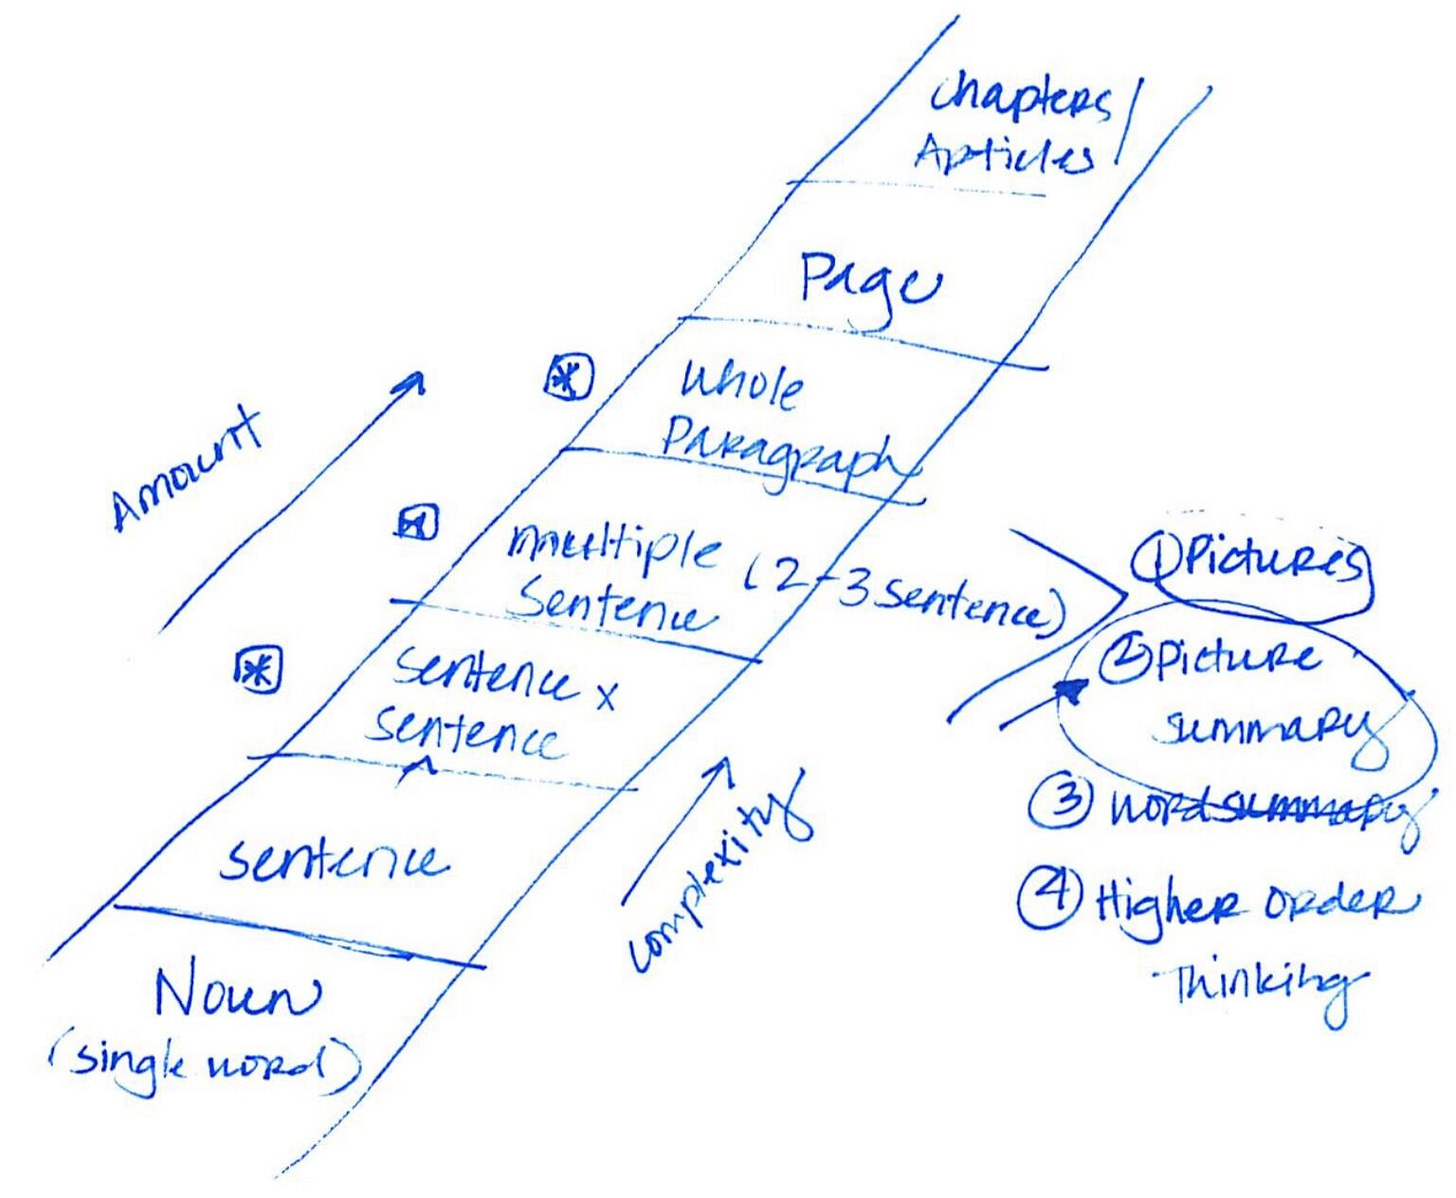 Chapters/
Articles
Page
Whole
Paragraph
multiple (2-3 sentence)
Sentence
Sentence x
sentence
^
sentence
Noun
(single word)
Amount
complexity
① Pictures
② Picture
summary
③ word summary
④ Higher order
Thinking